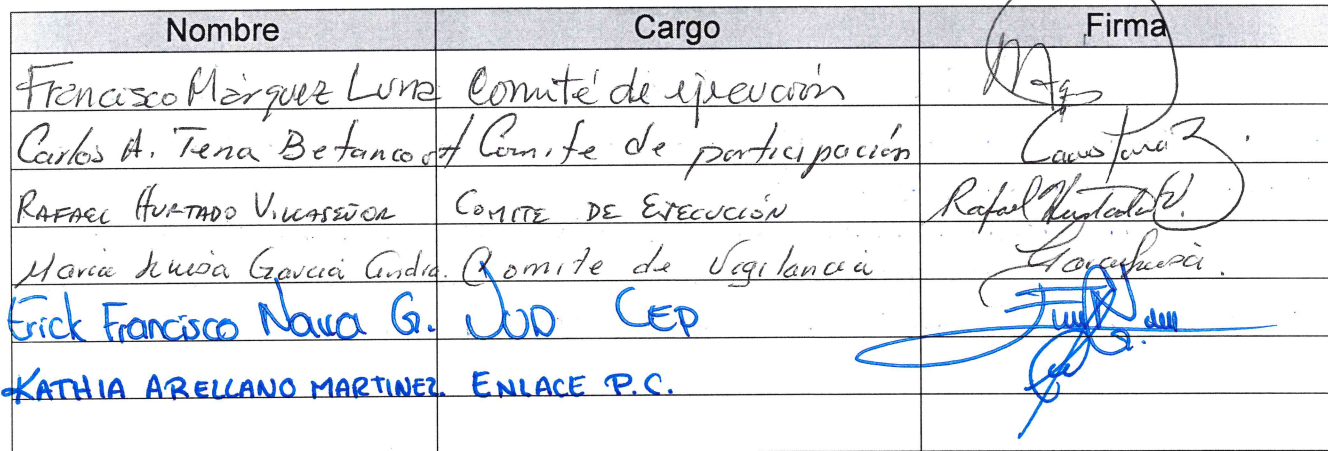 Nombre Cargo Firma
Francisco Márquez Luna Comité de ejecución
Carlos A. Tena Betancourt Comite de participación
RAFAEL HURTADO VILLASEÑOR COMITE DE EJECUCIÓN Rafael Hurtado V.
Maria Luisa Garcia Comite de Vigilancia
Erick Francisco Nava G. JUD CEP
KATHIA ARELLANO MARTINEZ. ENLACE P.C.